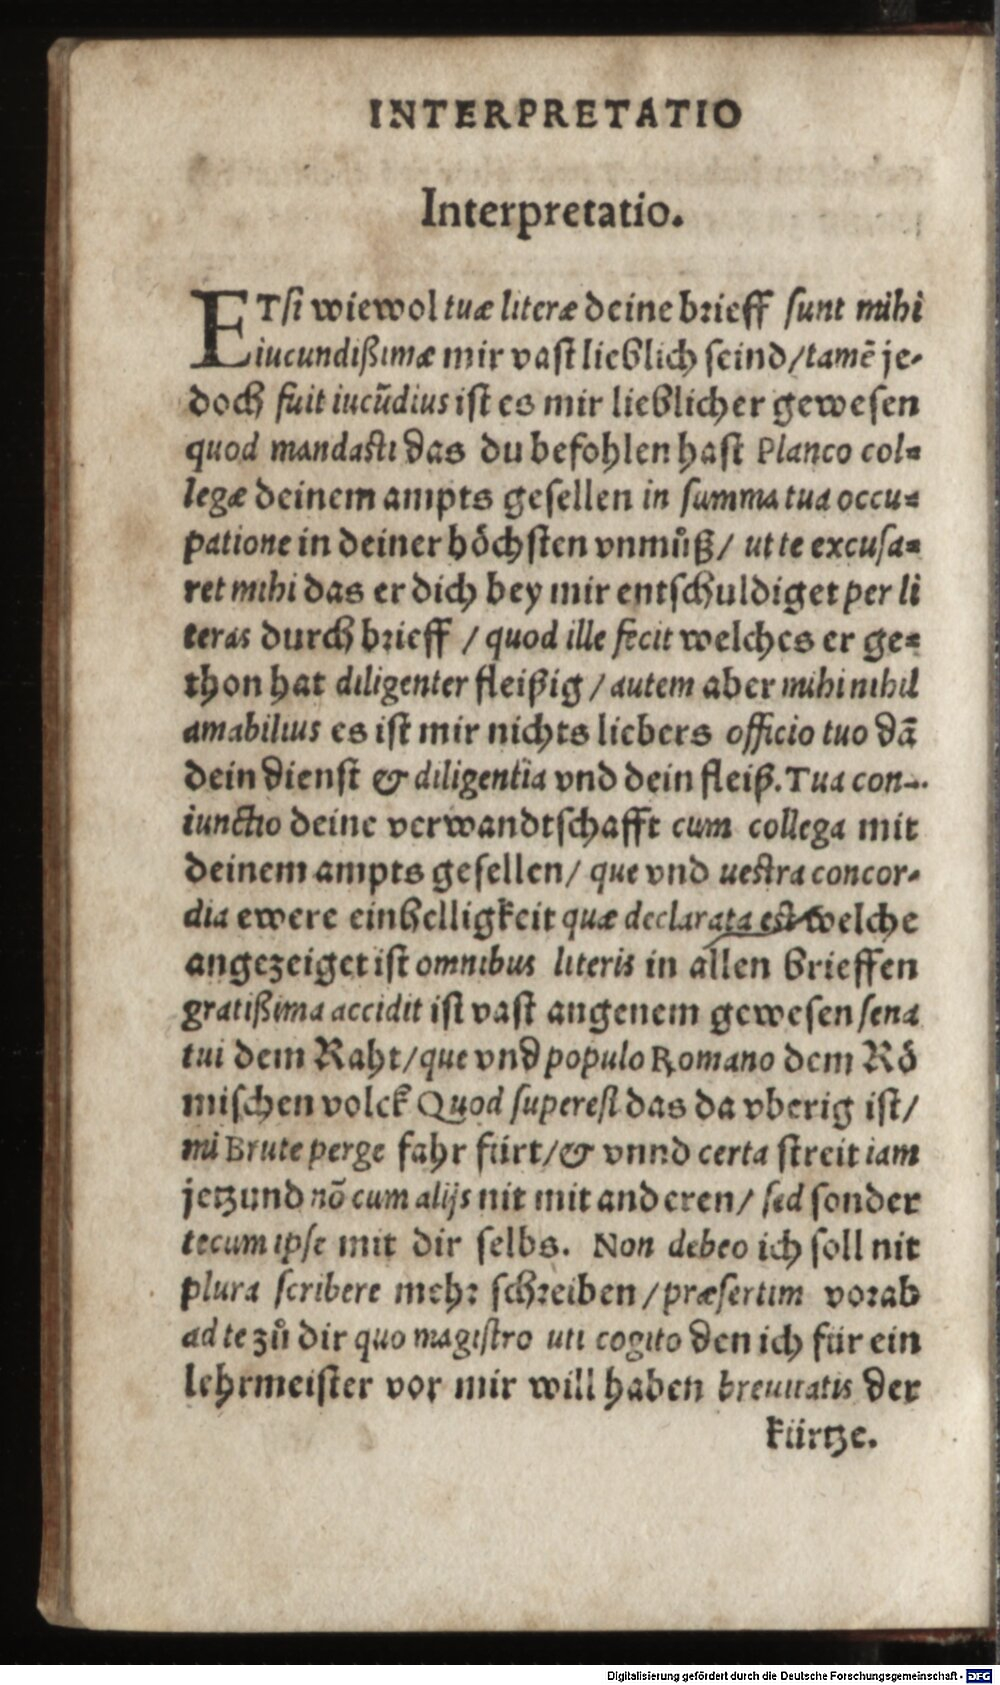 INTERPRETATIO
Interpretatio.
ETsi wiewol tuæ literæ deine brieff sunt mihi
iucundißimæ mir vast lieblich seind/tamē je-
doch fuit iucūdius ist es mir lieblicher gewesen
quod mandasti das du befohlen hast Planco col-
legæ deinem ampts gesellen in summa tua occu-
patione in deiner höchsten vnmůß/ ut te excusa-
ret mihi das er dich bey mir entschuldiget per li
teras durch brieff / quod ille fecit welches er ge-
thon hat diligenter fleißig / autem aber mihi nihil
amabilius es ist mir nichts liebers officio tuo dā
dein dienst & diligentia vnd dein fleiß. Tua con-
iunctio deine verwandtschafft cum collega mit
deinem ampts gesellen/ que vnd uestra concor-
dia ewere einhelligkeit quæ declarata est welche
angezeiget ist omnibus literis in allen brieffen
gratißima accidit ist vast angenem gewesen sena
tui dem Raht/que vnd populo Romano dem Rö
mischen volck Quod superest das da vberig ist/
mi Brute perge fahr fürt/& vnnd certa streit iam
jetzund nō cum alijs nit mit anderen/ sed sonder
tecum ipse mit dir selbs. Non debeo ich soll nit
plura scribere mehr schreiben /præsertim vorab
ad te zů dir quo magistro uti cogito den ich für ein
lehrmeister vor mir will haben breuitatis der
kürtze.
Digitalisierung gefördert durch die Deutsche Forschungsgemeinschaft - DFG